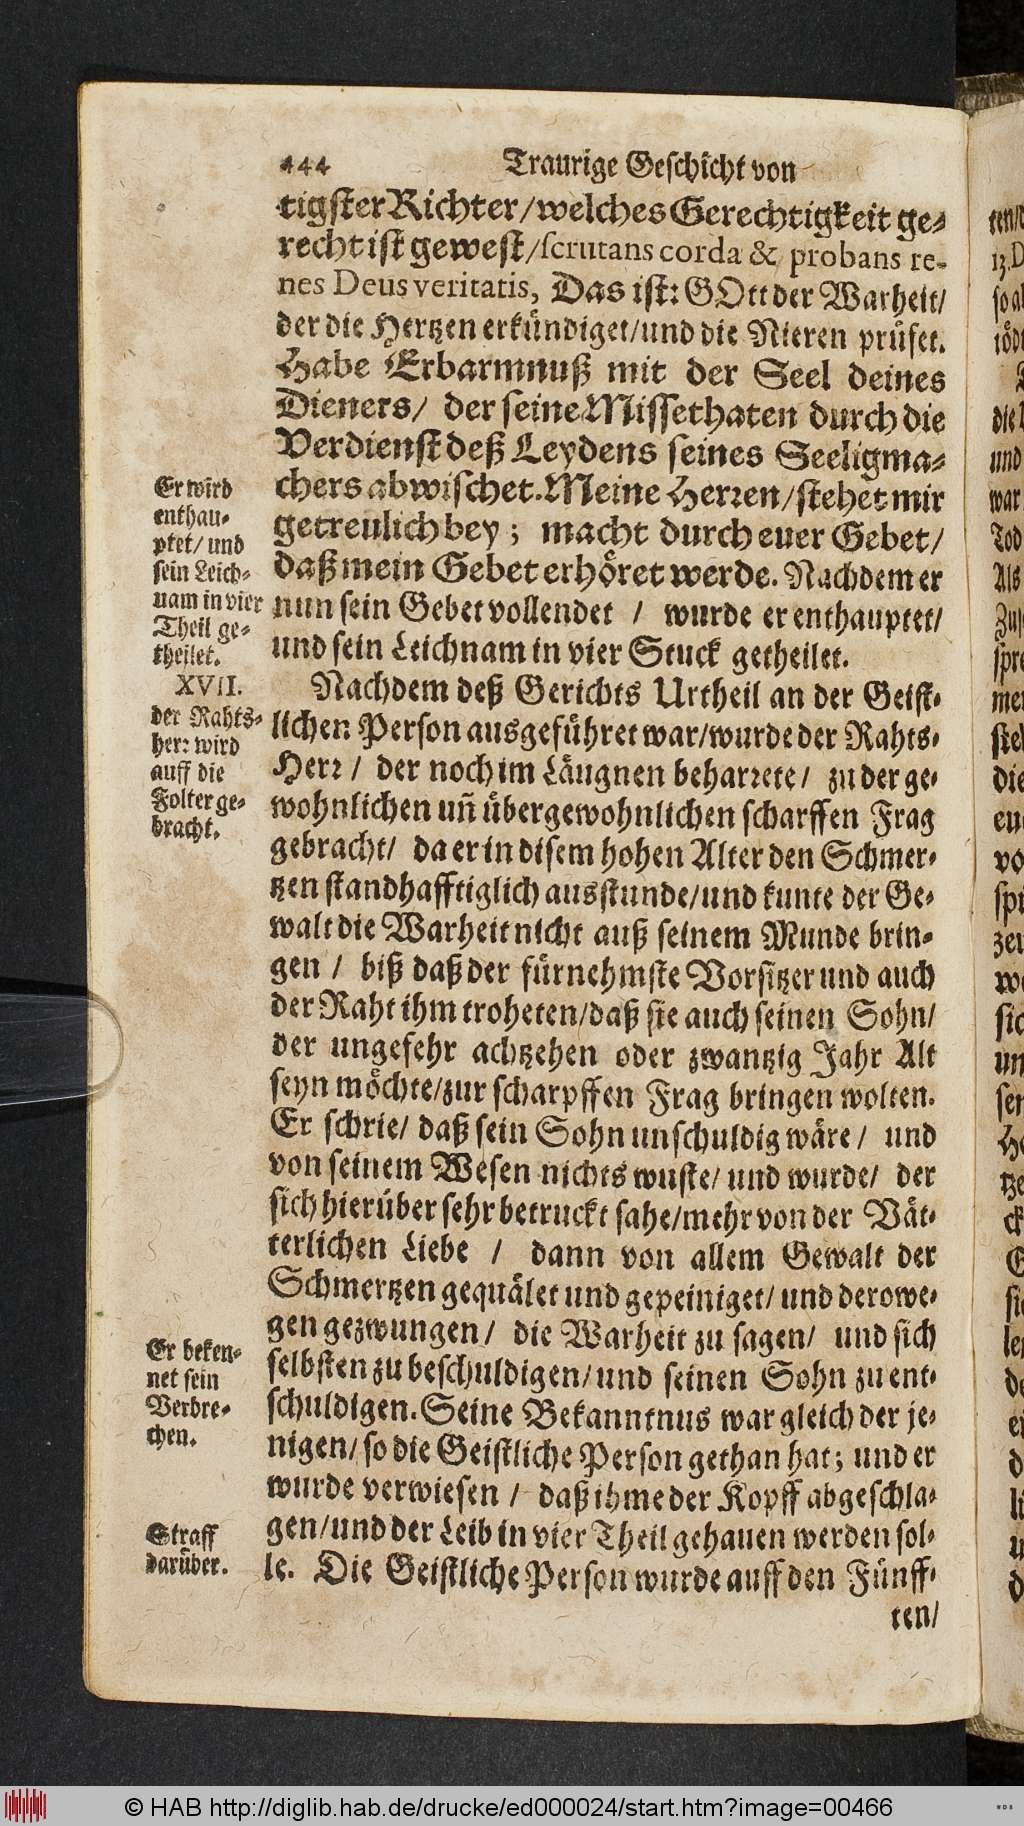 444 Traurige Geschicht von
tigster Richter/welches Gerechtigkeit ge-
recht ist gewest/scrutans corda & probans re-
nes Deus veritatis, Das ist: GOtt der Warheit/
der die Hertzen erkündiget/und die Nieren prüfet.
Habe Erbarmnuß mit der Seel deines
Dieners/ der seine Missethaten durch die
Verdienst deß Leydens seines Seeligma-
chers abwischet. Meine Herren/stehet mir
getreulich bey; macht durch euer Gebet/
daß mein Gebet erhöret werde. Nachdem er
nun sein Gebet vollendet / wurde er enthauptet/
und sein Leichnam in vier Stuck getheilet.
Er wird
enthau-
ptet/ und
sein Leich-
nam in vier
Theil ge-
theilet.
XVII.
der Rahts-
herr wird
auff die
Folter ge-
bracht.
Nachdem deß Gerichts Urtheil an der Geist-
lichen Person ausgeführet war/wurde der Rahts-
Herr / der noch im Läugnen beharrete/ zu der ge-
wohnlichen uñ übergewohnlichen scharffen Frag
gebracht/ da er in disem hohen Alter den Schmer-
tzen standhafftiglich ausstunde/und kunte der Ge-
walt die Warheit nicht auß seinem Munde brin-
gen / biß daß der fürnehmste Vorsitzer und auch
der Raht ihm troheten/daß sie auch seinen Sohn/
der ungefehr achtzehen oder zwantzig Jahr Alt
seyn möchte/zur scharpffen Frag bringen wolten.
Er schrie/ daß sein Sohn unschuldig wäre/ und
von seinem Wesen nichts wuste/ und wurde/ der
sich hierüber sehr betruckt sahe/mehr von der Vät-
terlichen Liebe / dann von allem Gewalt der
Schmertzen gequälet und gepeiniget/ und derowe-
gen gezwungen/ die Warheit zu sagen/ und sich
selbsten zu beschuldigen/und seinen Sohn zu ent-
schuldigen. Seine Bekanntnus war gleich der je-
nigen/ so die Geistliche Person gethan hat; und er
wurde verwiesen / daß ihme der Kopff abgeschla-
gen/und der Leib in vier Theil gehauen werden sol-
le. Die Geistliche Person wurde auff den Fünff-
ten/
Er beken-
net sein
Verbre-
chen.
Straff
darüber.
© HAB http://diglib.hab.de/drucke/ed000024/start.htm?image=00466